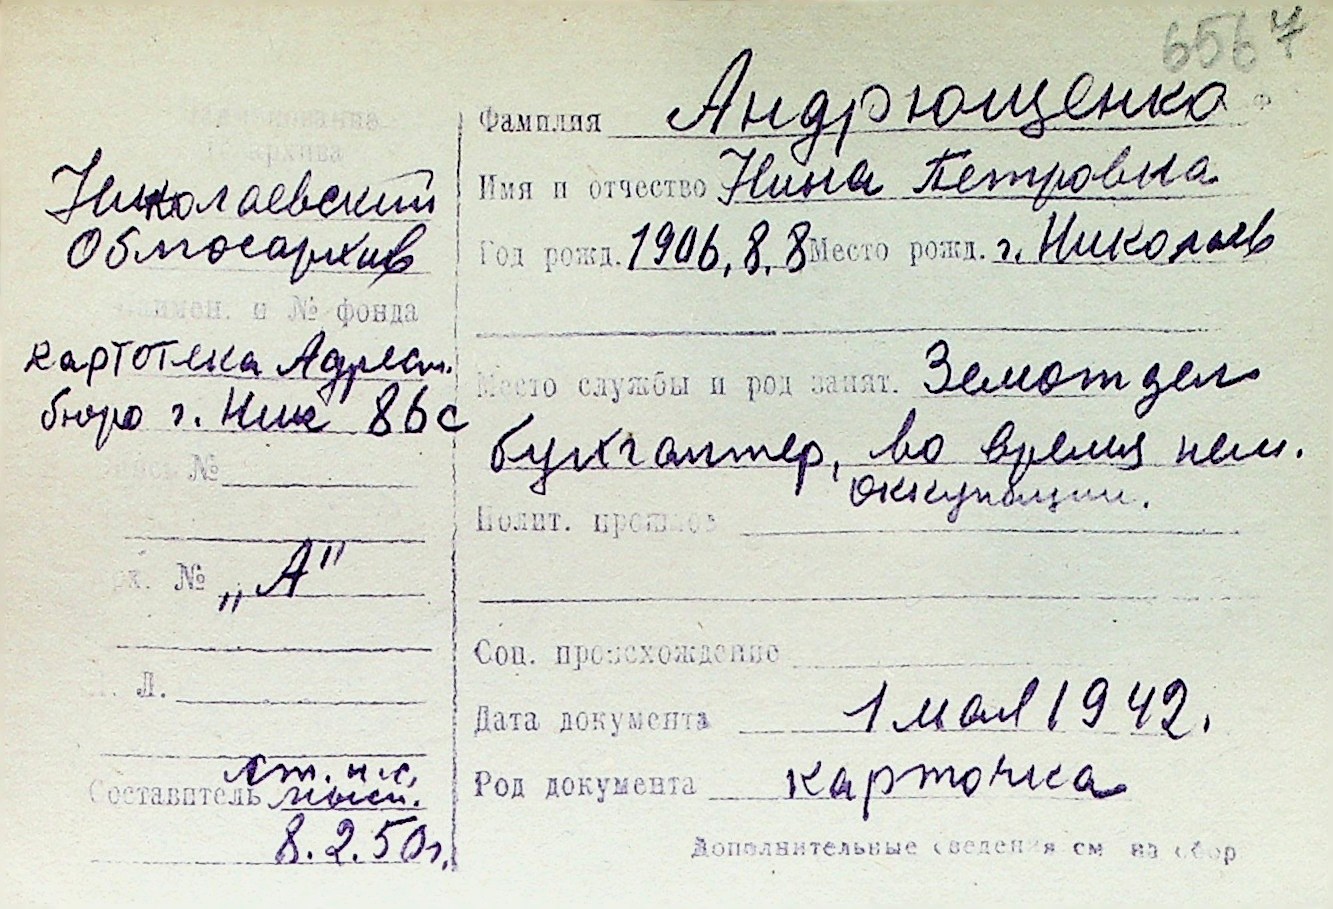 6567
Наименование
Госархива
Николаевский
Облгосархив
Наимен. и № фонда
картотека Адресн.
бюро г. Ник 86с
Опись №
Арх. № „А"
Л. Л.
Составитель ст. н.с.
8.2.50г.
Фамилия Андрющенко
Имя и отчество Нина Петровна
Год рожд. 1906, 8, 8 Место рожд. г. Николаев
Место службы и род занят. Земотдел
бухгалтер, во время нем.
оккупации.
Полит. прошлое
Соц. происхождение
Дата документа 1 мая 1942.
Род документа карточка
Дополнительные сведения см на обор